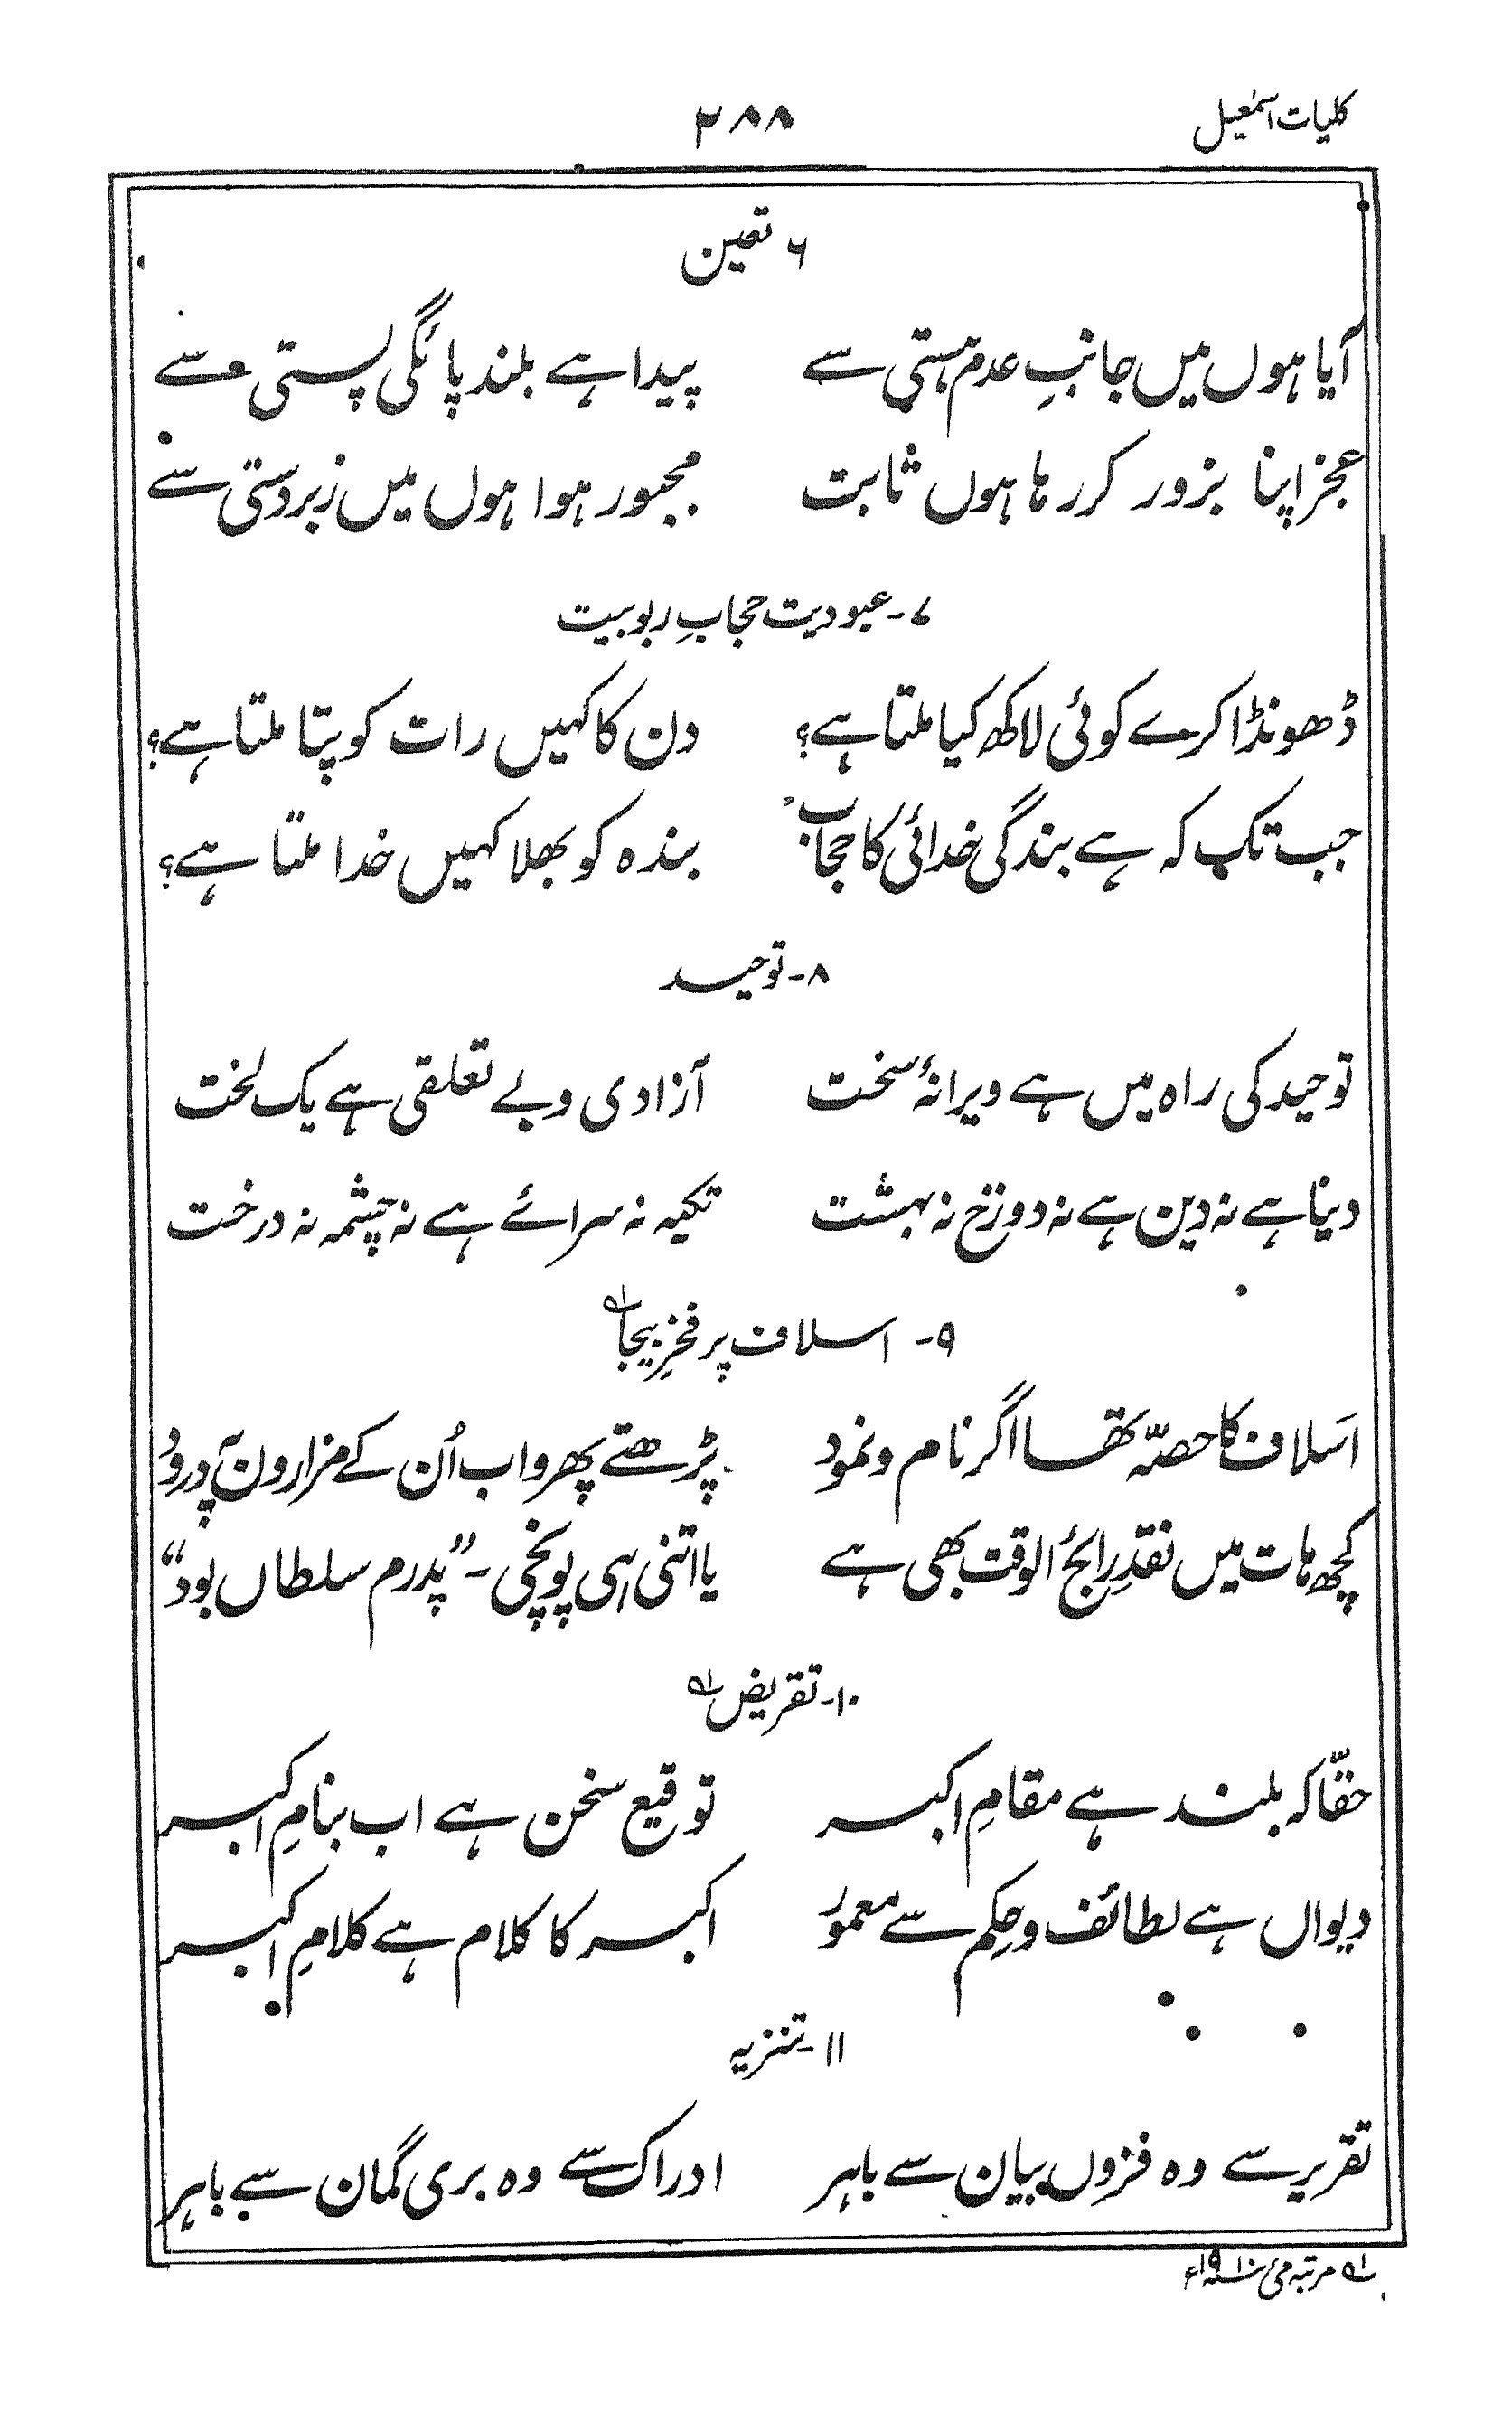 کلیات اسمٰعیل ۲۸۸
۶ تعین
آیا ہوں میں جانبِ عدم ہستی سے پیدا ہے بلند پائگی پستی سے
عجز اپنا بزور کر رہا ہوں ثابت مجبور ہوا ہوں میں زبردستی سے
۷۔ عبودیت حجابِ ربوبیت
ڈھونڈا کرے کوئی لاکھ کیا ملتا ہے؟ دن کا کہیں رات کو پتا ملتا ہے؟
جب تک کہ ہے بندگی خدائی کا حجاب بندہ کو بھلا کہیں خدا ملتا ہے؟
۸۔ توحید
توحید کی راہ میں ہے ویرانۂ سخت آزادی و بے تعلقی ہے یک لخت
دنیا ہے نہ دین ہے نہ دوزخ نہ بہشت تکیہ نہ سرائے ہے نہ چشمہ نہ درخت
۹۔ اسلاف پر فخرِ بیجا ؂۱
اَسلاف کا حصّہ تھا اگر نام و نمود پڑھتے پھرو اب اُن کے مزاروں پہ درود
کچھ ہات میں نقدِ رائجُ الوقت بھی ہے یا اتنی ہی پونجی۔ ”پدرم سلطاں بود“
۱۰۔ تقریض ؂۱
حقّا کہ بلند ہے مقامِ اکبر توقیع سخن ہے اب بنامِ اکبر
دیواں ہے لطائف و حِکم سے معمور اکبر کا کلام ہے کلامِ اکبر
۱۱۔ تنزیہ
تقریر سے وہ فزوں بیان سے باہر ادراک سے وہ بری گمان سے باہر
؂۱ مرتبہ مئی ۱۹۱۰ء